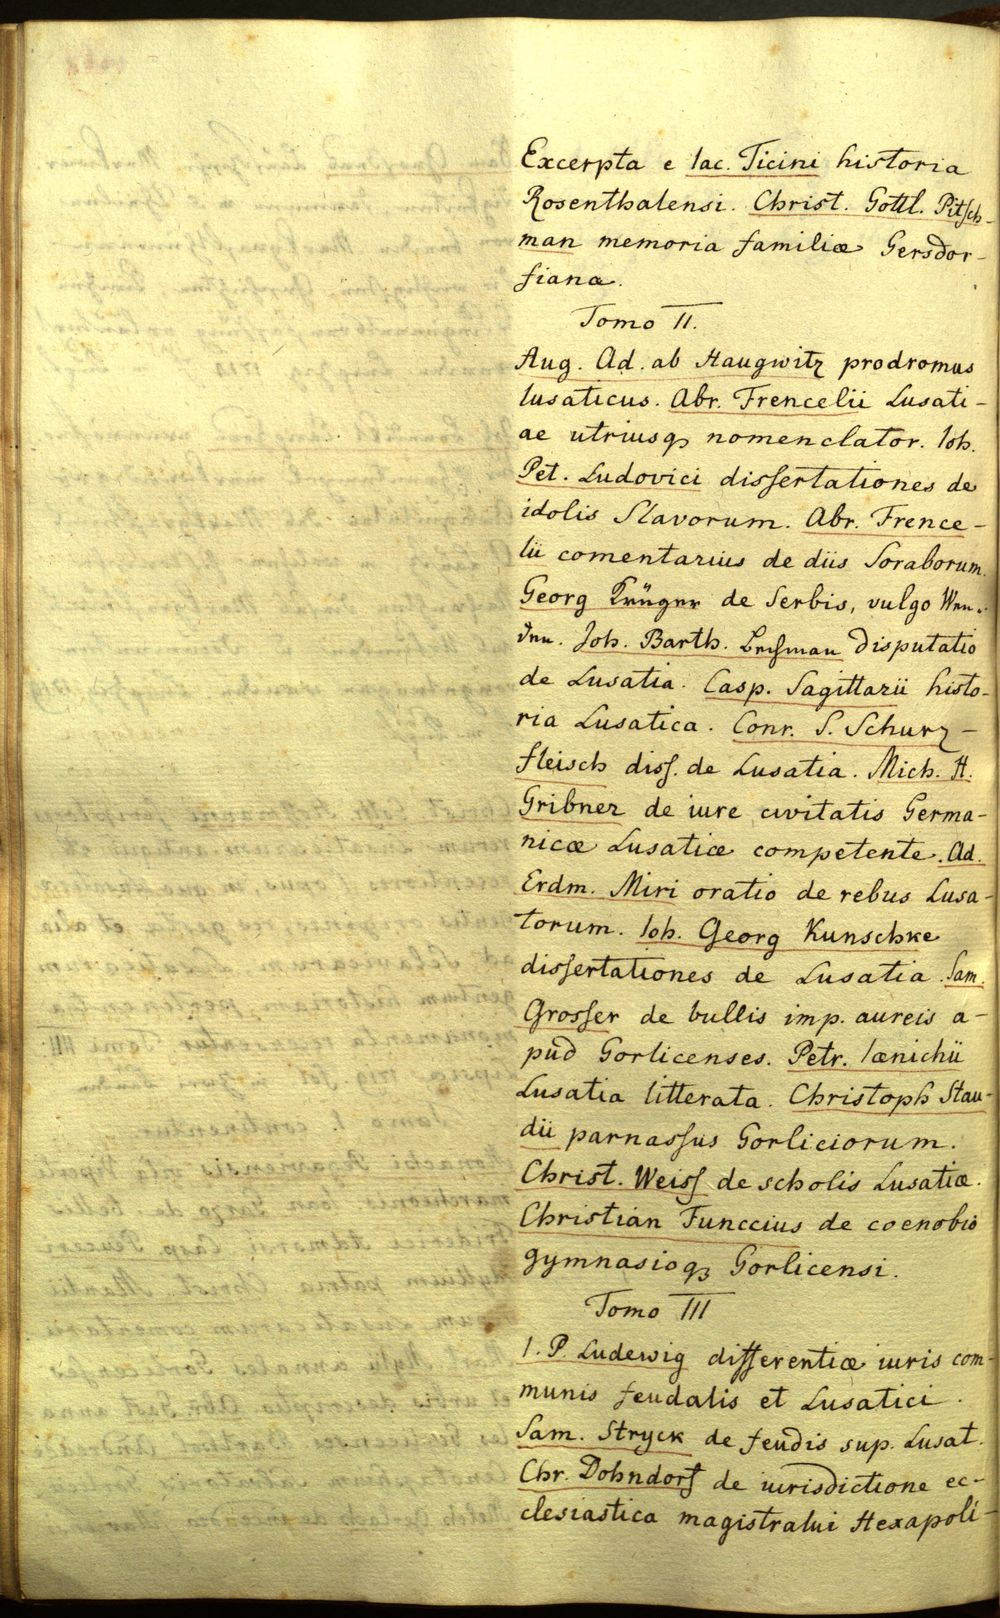 Excerpta e Iac. Ticini historia
Rosenthalensi. Christ. Gottl. Pitsch-
man memoria familiæ Gersdor-
fianæ.
Tomo II.
Aug. Ad. ab Haugwitz prodromus
lusaticus. Abr. Frencelii Lusati-
ae utriusq; nomenclator. Ioh.
Pet. Ludovici dissertationes de
idolis Slavorum. Abr. Frence-
lii comentarius de diis Soraborum.
Georg Krüger de Serbis, vulgo Wen-
den. Joh. Barth. disputatio
de Lusatia. Casp. Sagittarii histo-
ria Lusatica. Conr. S. Schurz-
fleisch diss. de Lusatia. Mich. H.
Gribner de iure civitatis Germa-
nicæ Lusatiæ competente. Ad.
Erdm. Miri oratio de rebus Lusa-
torum. Ioh. Georg Kunschke
dissertationes de Lusatia. Sam.
Grosser de bullis imp. aureis a-
pud Gorlicenses. Petr. Iænichii
Lusatia litterata. Christoph Stau-
dii parnassus Gorliciorum.
Christ. Weiss de scholis Lusatiæ.
Christian Funccius de coenobio
gymnasioq; Gorlicensi.
Tomo III
I. P. Ludewig differentiæ iuris com-
munis feudalis et Lusatici.
Sam. Stryck de feudis sup. Lusat.
Chr. Dohndorf de iurisdictione ec-
clesiastica magistratui Hexapoli-